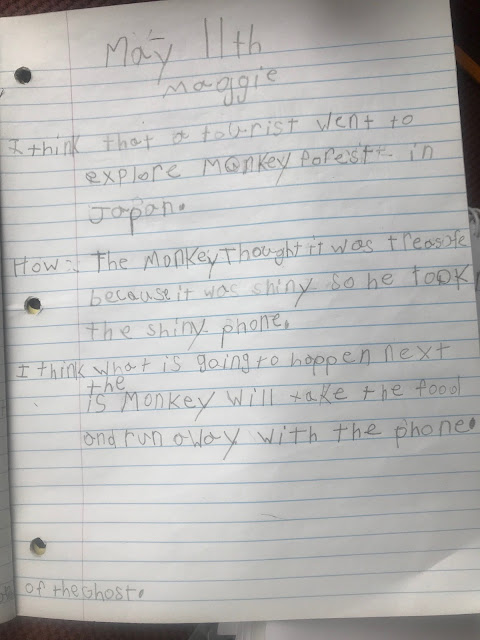 May 11th
Maggie
I think that a tourist went to
explore Monkey forest in
Japan.
How: The Monkey Thought it was treasure
because it was shiny so he took
the shiny phone.
I think what is going to happen next
the
is Monkey will take the food
and run away with the phone.
of the Ghost.